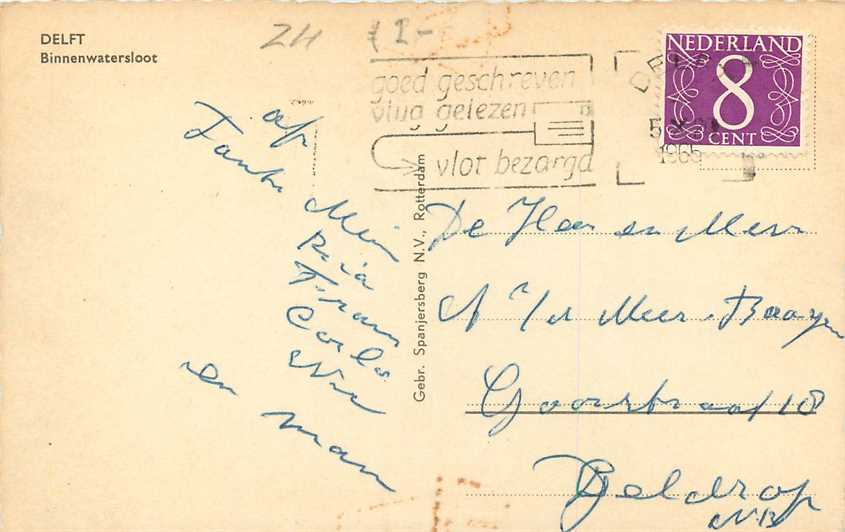 DELFT
Binnenwatersloot
ZH 1-
goed geschreven
vlug gelezen
vlot bezorgd
DELFT
5
1965
NEDERLAND
8
CENT
Gebr. Spanjersberg N.V., Rotterdam
Tante Mien
Ria
Frans
en man
De Heer en Mevr
A v/d Meer-Baayen
Goorstraat 18
Geldrop
NB